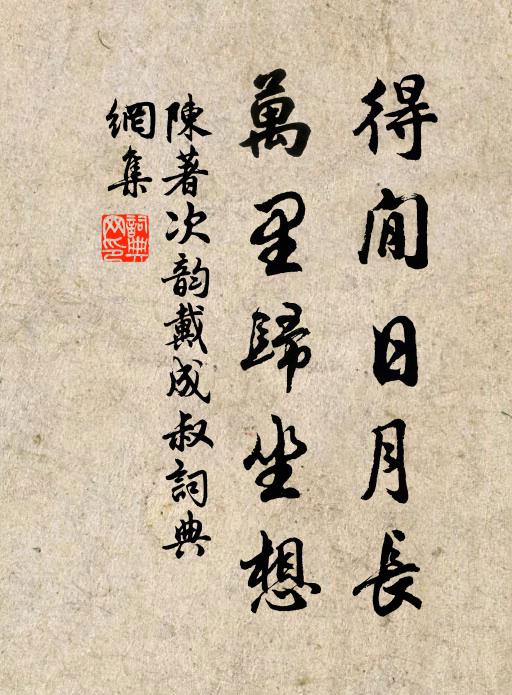 得閒日月長
萬里歸坐想
陳著次韵戴成叔詞典
網集
詞典
网印